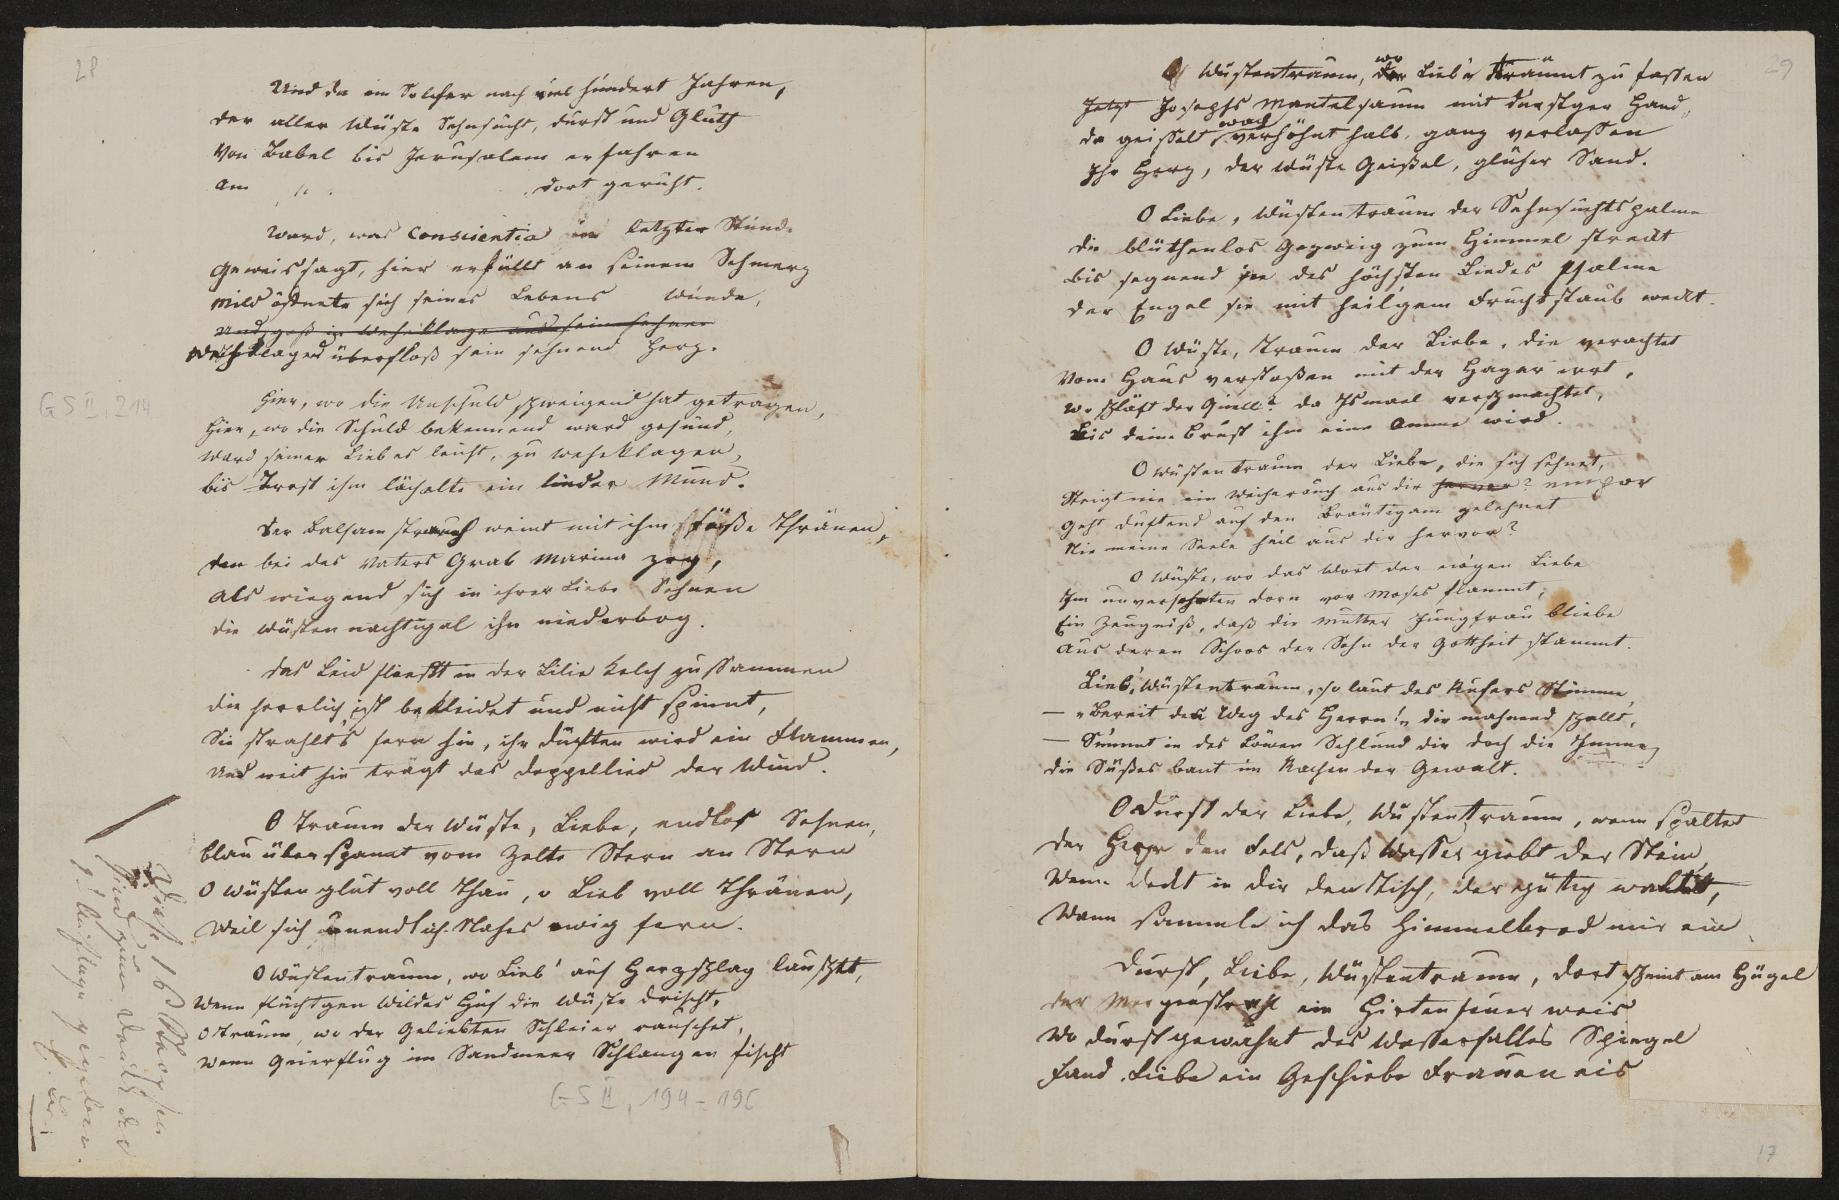 28
Und da ein Solcher nach viel hundert Jahren,
der aller Wüste Sehnsucht, Durst und Gluth
Von Babel bis Jerusalem erfahren
Am dort geruht.
Ward, was Conscientia in letzter Stunde
Geweissagt, hier erfüllt an seinem Schmerz
Mild öffnete sich seines Lebens Wunde,
Und goß in Weheklage aus sein sehnen
Wehklagend überfloß sein sehnend Herz.
GS II, 214
Hier, wo die Unschuld schweigend hat getragen,
Hier, wo die Schuld bekennend ward gesund,
Ward seiner Lieb es leicht, zu wehklagen,
bis Trost ihm lächelte ein linder Mund.
Der Balsamstrauch weint mit ihm süße Thränen,
den bei des Vaters Grab Marina zog,
Als wiegend sich in ihrer Liebe Sehnen
die Wüstennachtigal ihn niederbog.
das Leid fliesst in der Lilie Kelch zusammen
die herrlich ist bekleidet und nicht spinnt,
Sie strahlt's fern hin, ihr Düften wird ein Flammen,
Und weit hin trägt das Doppellied der Wind.
O Traum der Wüste, Liebe, endlos Sehnen,
blau überspannt vom Zelte Stern an Stern
O Wüstenglut voll Thau, o Lieb voll Thränen,
Weil sich unendlich Nahes ewig fern.
O Wüstentraum, wo Lieb' auf Herzschlag lauschet,
Wenn flüchtgen Wildes Huf die Wüste drischt,
O Traum, wo der Geliebten Schleier rauschet,
Wenn Geierflug im Sandmeer Schlangen fischt
GS II, 194-196
Diese 16 Strophen
sind zum Druck
29
O Wüstentraum, wo Lieb' träumt zu fassen
Jetzt Josephs Mantelsaum mit durstger Hand,
da geisselt wach verhöhnt halb, ganz verlassen
Ihr Herz, der Wüste Geißel, glüher Sand.
O Liebe, Wüstentraum der Sehnsuchtspalme
die blüthenlos Gezweig zum Himmel streckt
bis segnend sie des höchsten Liedes Psalme
der Engel sie mit heilgem Fruchtstaub weckt.
O Wüste, Traum der Liebe, die verachtet
Vom Haus verstoßen mit der Hagar irrt,
wo schläft der Quell? da Ismael verschmachtet,
Bis deine Brust ihm eine Amme wird.
O Wüstentraum der Liebe, die sich sehnet,
Steigt nie ein Weihrauch aus dir hervor? empor
Geht duftend auf den Bräutigam gelehnet
Nie meine Seele heil aus dir hervor?
O Wüste, wo das Wort der ewgen Liebe
Im unversehrten Dorn vor Moses flammt,
Ein Zeugniß, daß die Mutter Jungfrau bliebe
Aus deren Schoos der Sohn der Gottheit stammt.
Lieb', Wüstentraum, so laut des Rufers Stimme,
— „Bereit den Weg des Herrn!„ dir mahnend schallt,
— Summt in des Löwen Schlund dir doch die Imme,
die Süßes baut im Rachen der Gewalt.
O Durst der Liebe, Wüstentraum, wann spaltet
der Herr den Fels, daß Wasser giebt der Stein,
Wann deckt in dir den Tisch, der gütig waltet,
Wann sammle ich das Himmelbrod mir ein
Durst, Liebe, Wüstentraum, dort scheint am Hügel
der Morgenstrahl ein Hirtenfeuer weis
Wo Durst gewahnt des Wasserfalles Spiegel
Fand Liebe ein Geschiebe Fraueneis
17